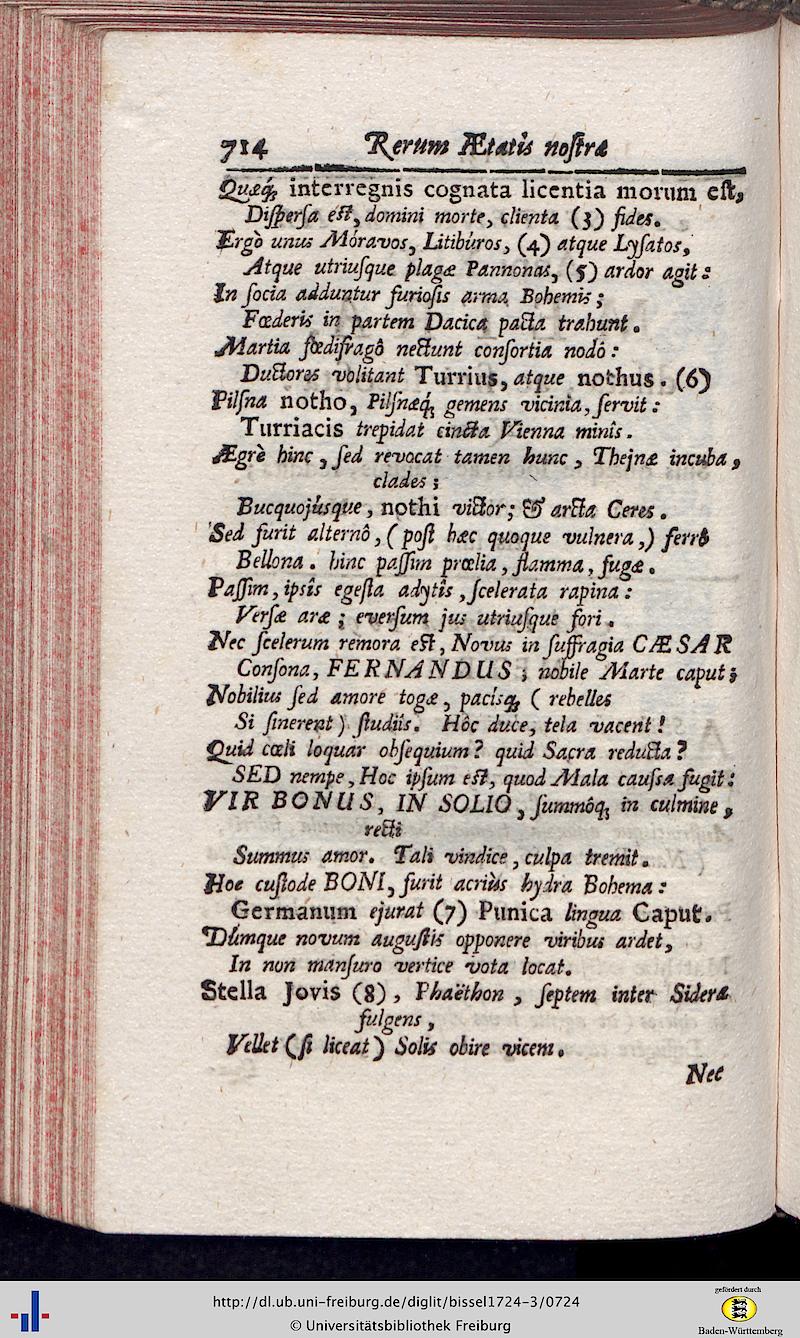 714 Rerum Ætatis noſtræ
Quæq́; interregnis cognata licentia morum eſt,
Diſperſa eſt, domini morte, clienta (3) fides.
Ergò unus Móravos, Litibúros, (4) atque Lyſatos,
Atque utriuſque plagæ Pannonas, (5) ardor agit:
In ſocia adduntur furioſis arma Bohemis;
Fœderis in partem Dacica pacta trahunt.
Martia fœdifragô nectunt conſortia nodô:
Ductores volitant Turrius, atque nothus. (6)
Pilſna notho, Pilſnæq́; gemens vicinia, ſervit:
Turriacis trepidat cincta Vienna minîs.
Ægrè hinc, ſed revocat tamen hunc, Thejnæ incuba,
clades;
Bucquojúsque, nothi victor; & arcta Ceres.
Sed furit alternô, (poſt hæc quoque vulnera,) ferrô
Bellona. hinc paſſim prœlia, flamma, fugæ.
Paſſim, ipsîs egeſta adytîs, ſcelerata rapina:
Verſæ aræ; everſum jus utriuſque fori.
Nec ſcelerum remora eſt, Novus in ſuffragia CÆSAR
Conſona, FERNANDUS; nobile Marte caput;
Nobilius ſed amore togæ, pacísq; (rebelles
Si ſinerent) ſtudiîs. Hôc duce, tela vacent!
Quid cœli loquar obſequium? quid Sacra reducta?
SED nempe, Hoc ipſum eſt, quod Mala cauſſa fugit:
VIR BONUS, IN SOLIO, ſummôq; in culmine,
recti
Summus amor. Tali vindice, culpa tremit.
Hoc cuſtode BONI, furit acriùs hydra Bohema:
Germanum ejurat (7) Punica lingua Caput.
Dúmque novum auguſtis opponere viribus ardet,
In non manſuro vertice vota locat.
Stella Jovis (8), Phaëthon, ſeptem inter Sidera
fulgens,
Vellet (ſi liceat) Solis obire vicem.
Nec
http://dl.ub.uni-freiburg.de/diglit/bissel1724-3/0724
© Universitätsbibliothek Freiburg
gefördert durch
Baden-Württemberg